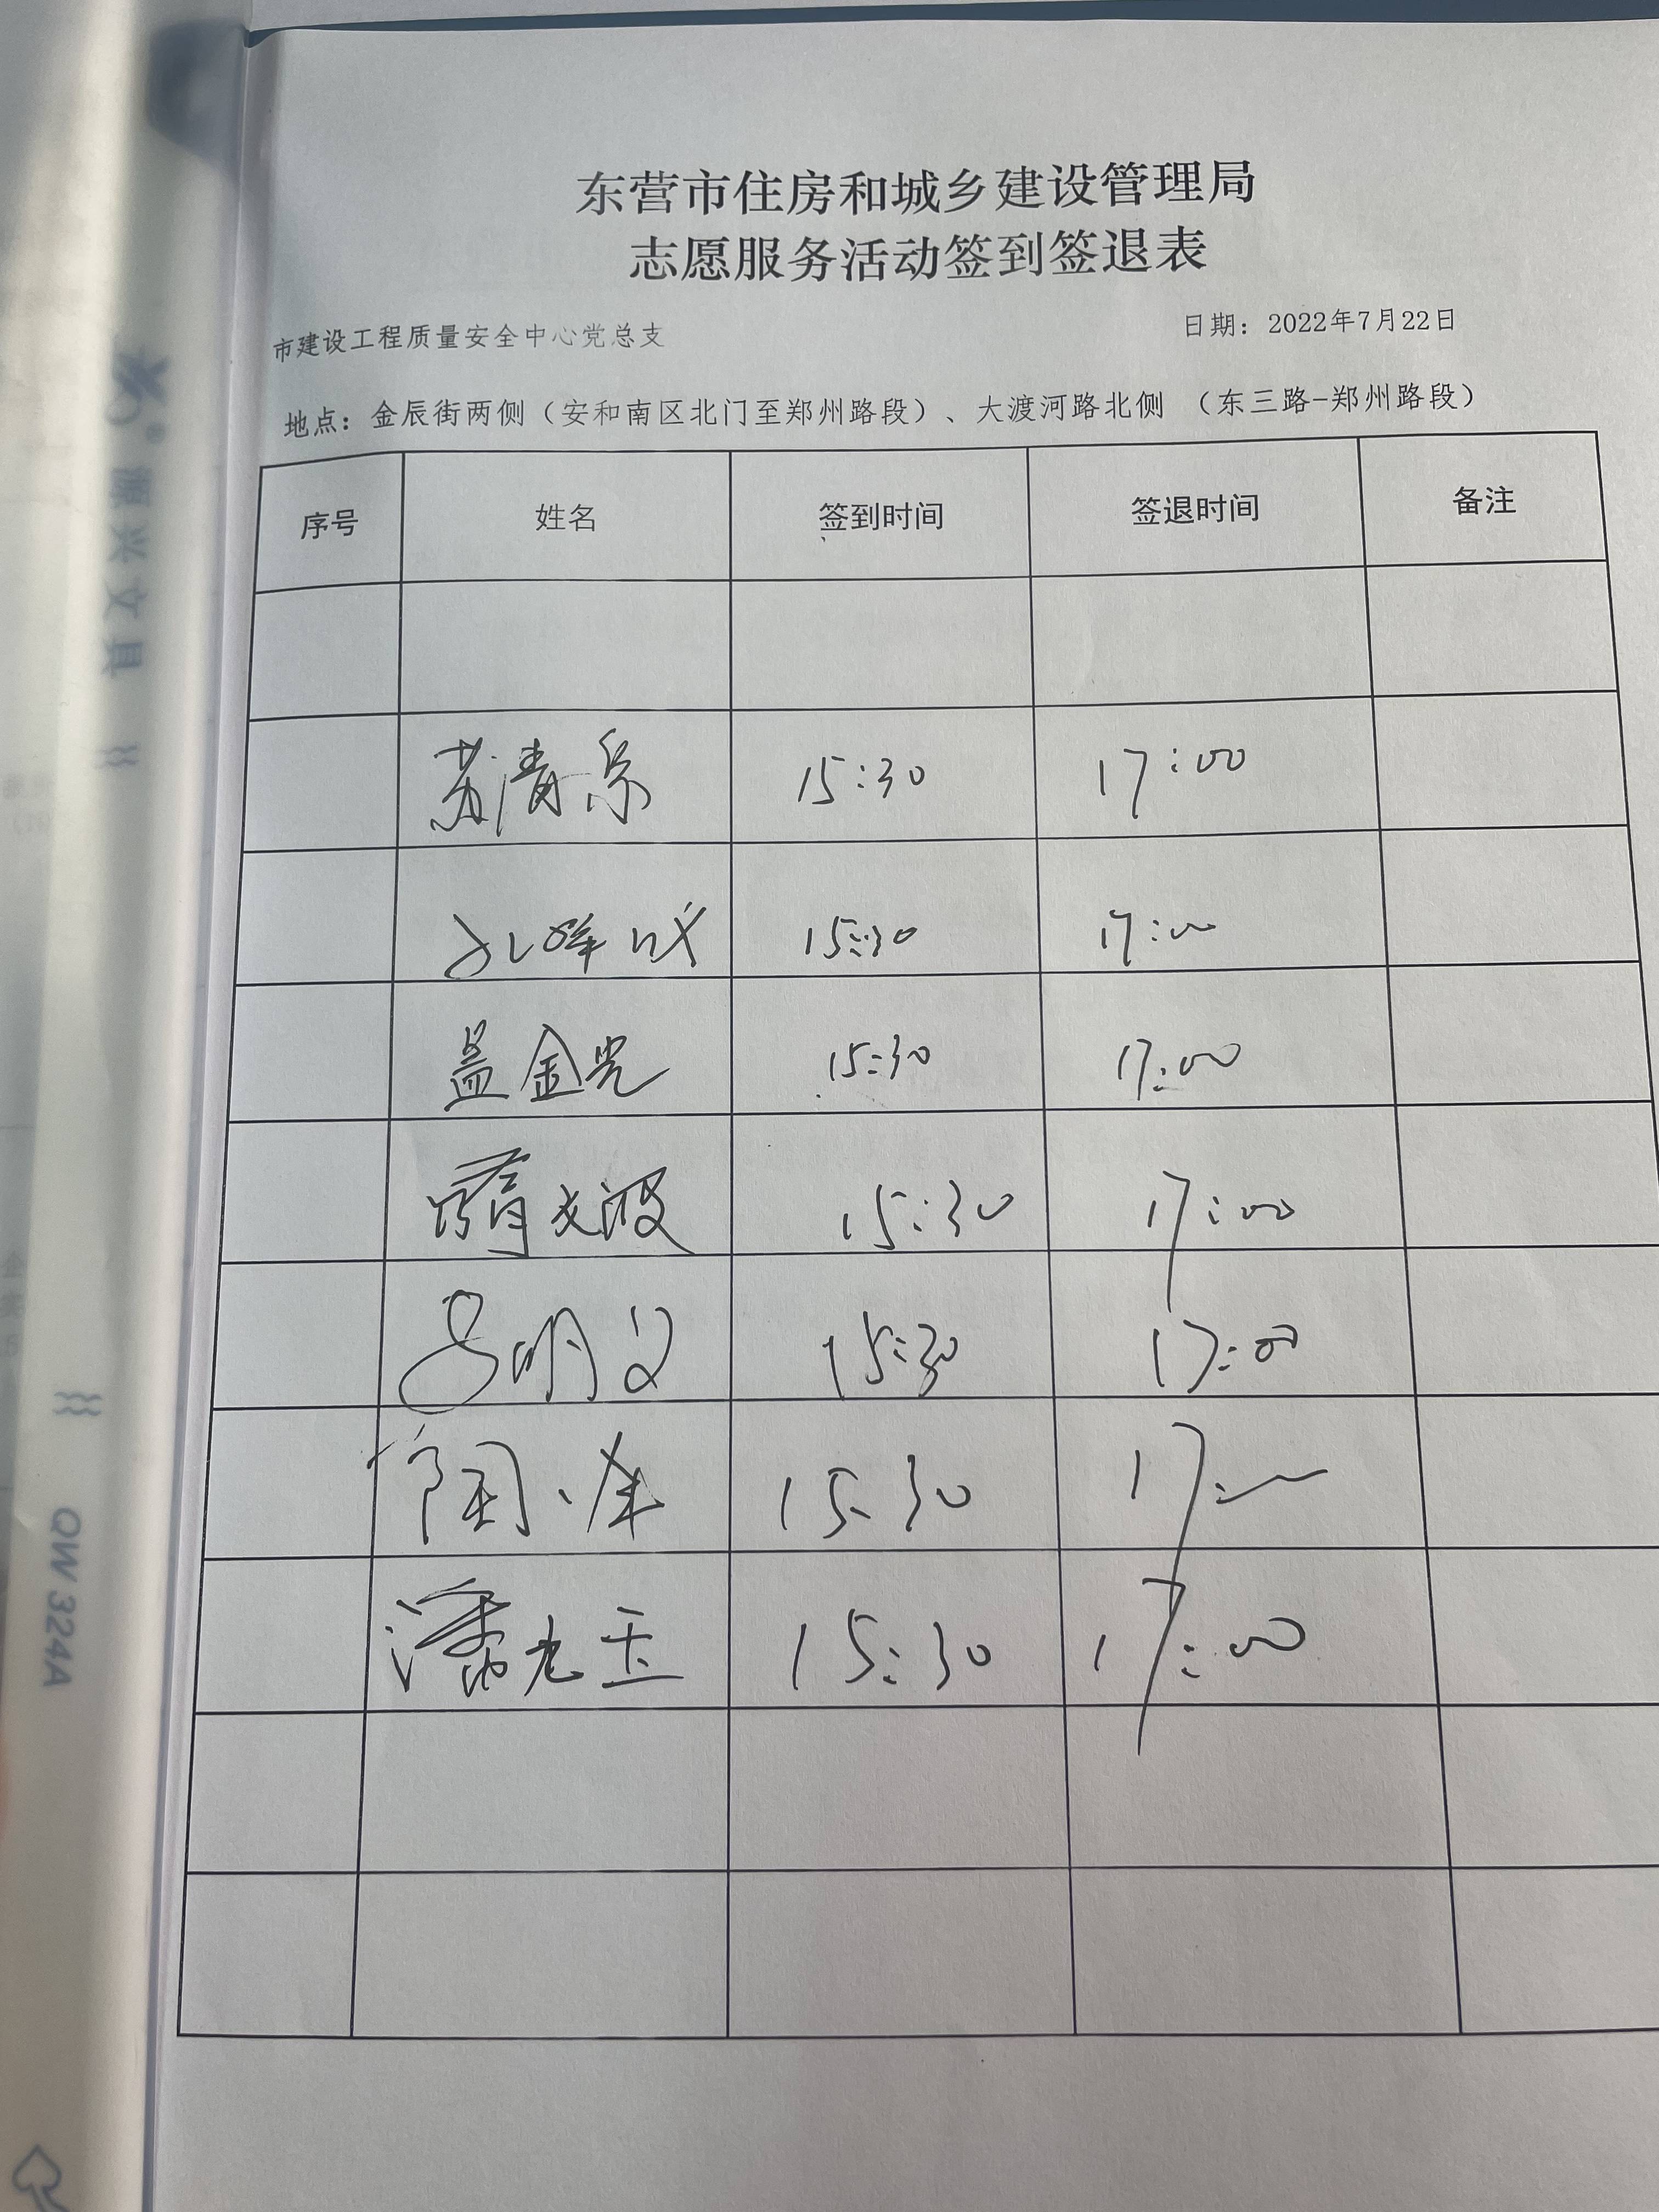 东营市住房和城乡建设管理局
志愿服务活动签到签退表
市建设工程质量安全中心党总支
日期：2022年7月22日
地点：金辰街两侧（安和南区北门至郑州路段）、大渡河路北侧 （东三路-郑州路段）
序号 姓名 签到时间 签退时间 备注
苏清 15:30 17:00
15:30 17:00
盖金光 15:30 17:00
15:30 17:00
吕明 15:30 17:00
15:30 17:00
潘光玉 15:30 17:00
源兴文具
QW324A